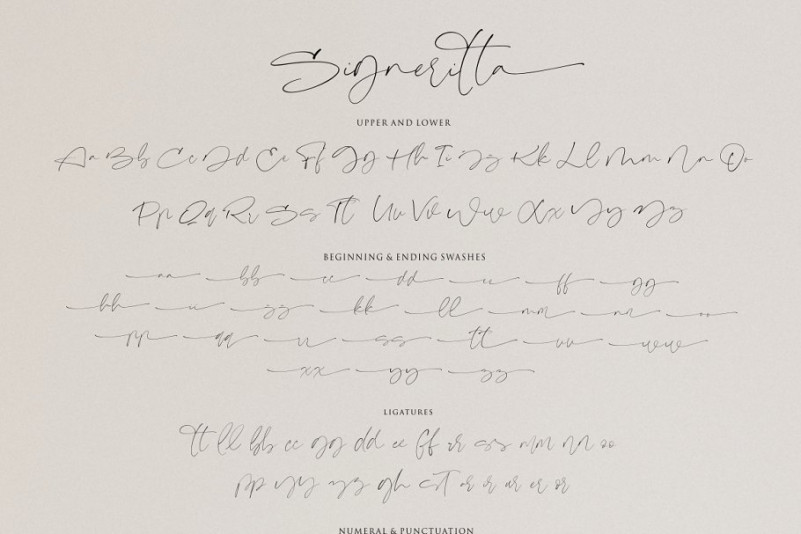 Signeritta
UPPER AND LOWER
Aa Bb Cc Dd Ee Ff Gg Hh Ii Jj Kk Ll Mm Nn Oo
Pp Qq Rr Ss Tt Uu Vv Ww Xx Yy Zz
BEGINNING & ENDING SWASHES
aa bb cc dd ee ff gg
hh ii jj kk ll mm nn oo
pp qq rr ss tt vv ww
xx yy zz
LIGATURES
tt ll bb cc gg dd ee ff rr ss mm nn oo
pp yy zz gh ar ir ur er or
NUMERAL & PUNCTUATION